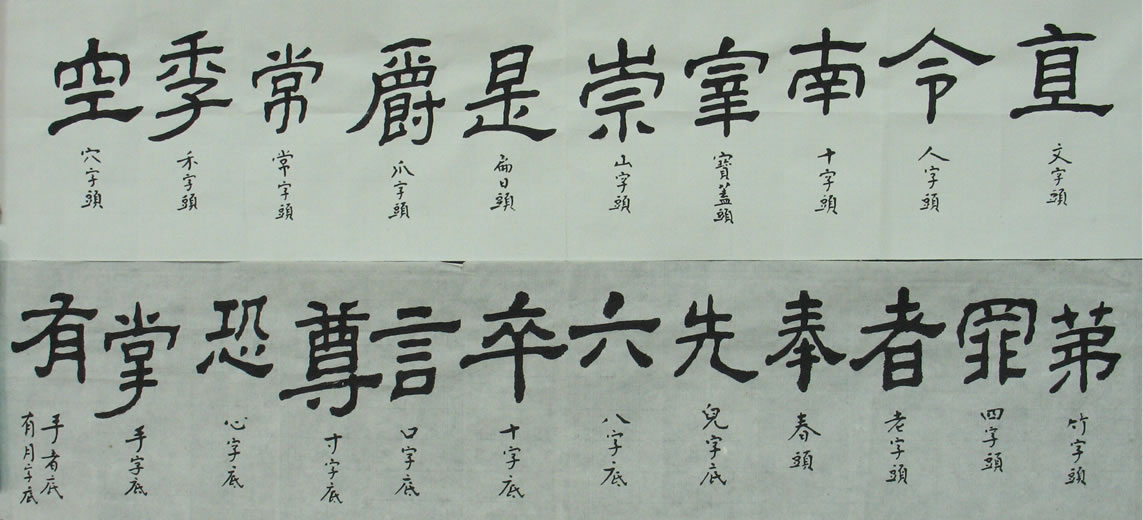 直
文字頭
令
人字頭
南
十字頭
宰
寶蓋頭
崇
山字頭
是
扁日頭
爵
爪字頭
常
常字頭
季
禾字頭
空
穴字頭
第
竹字頭
罪
四字頭
者
老字頭
奉
春頭
先
兒字底
六
八字底
卒
十字底
言
口字底
尊
寸字底
恐
心字底
掌
手字底
有
手者底
有月字底